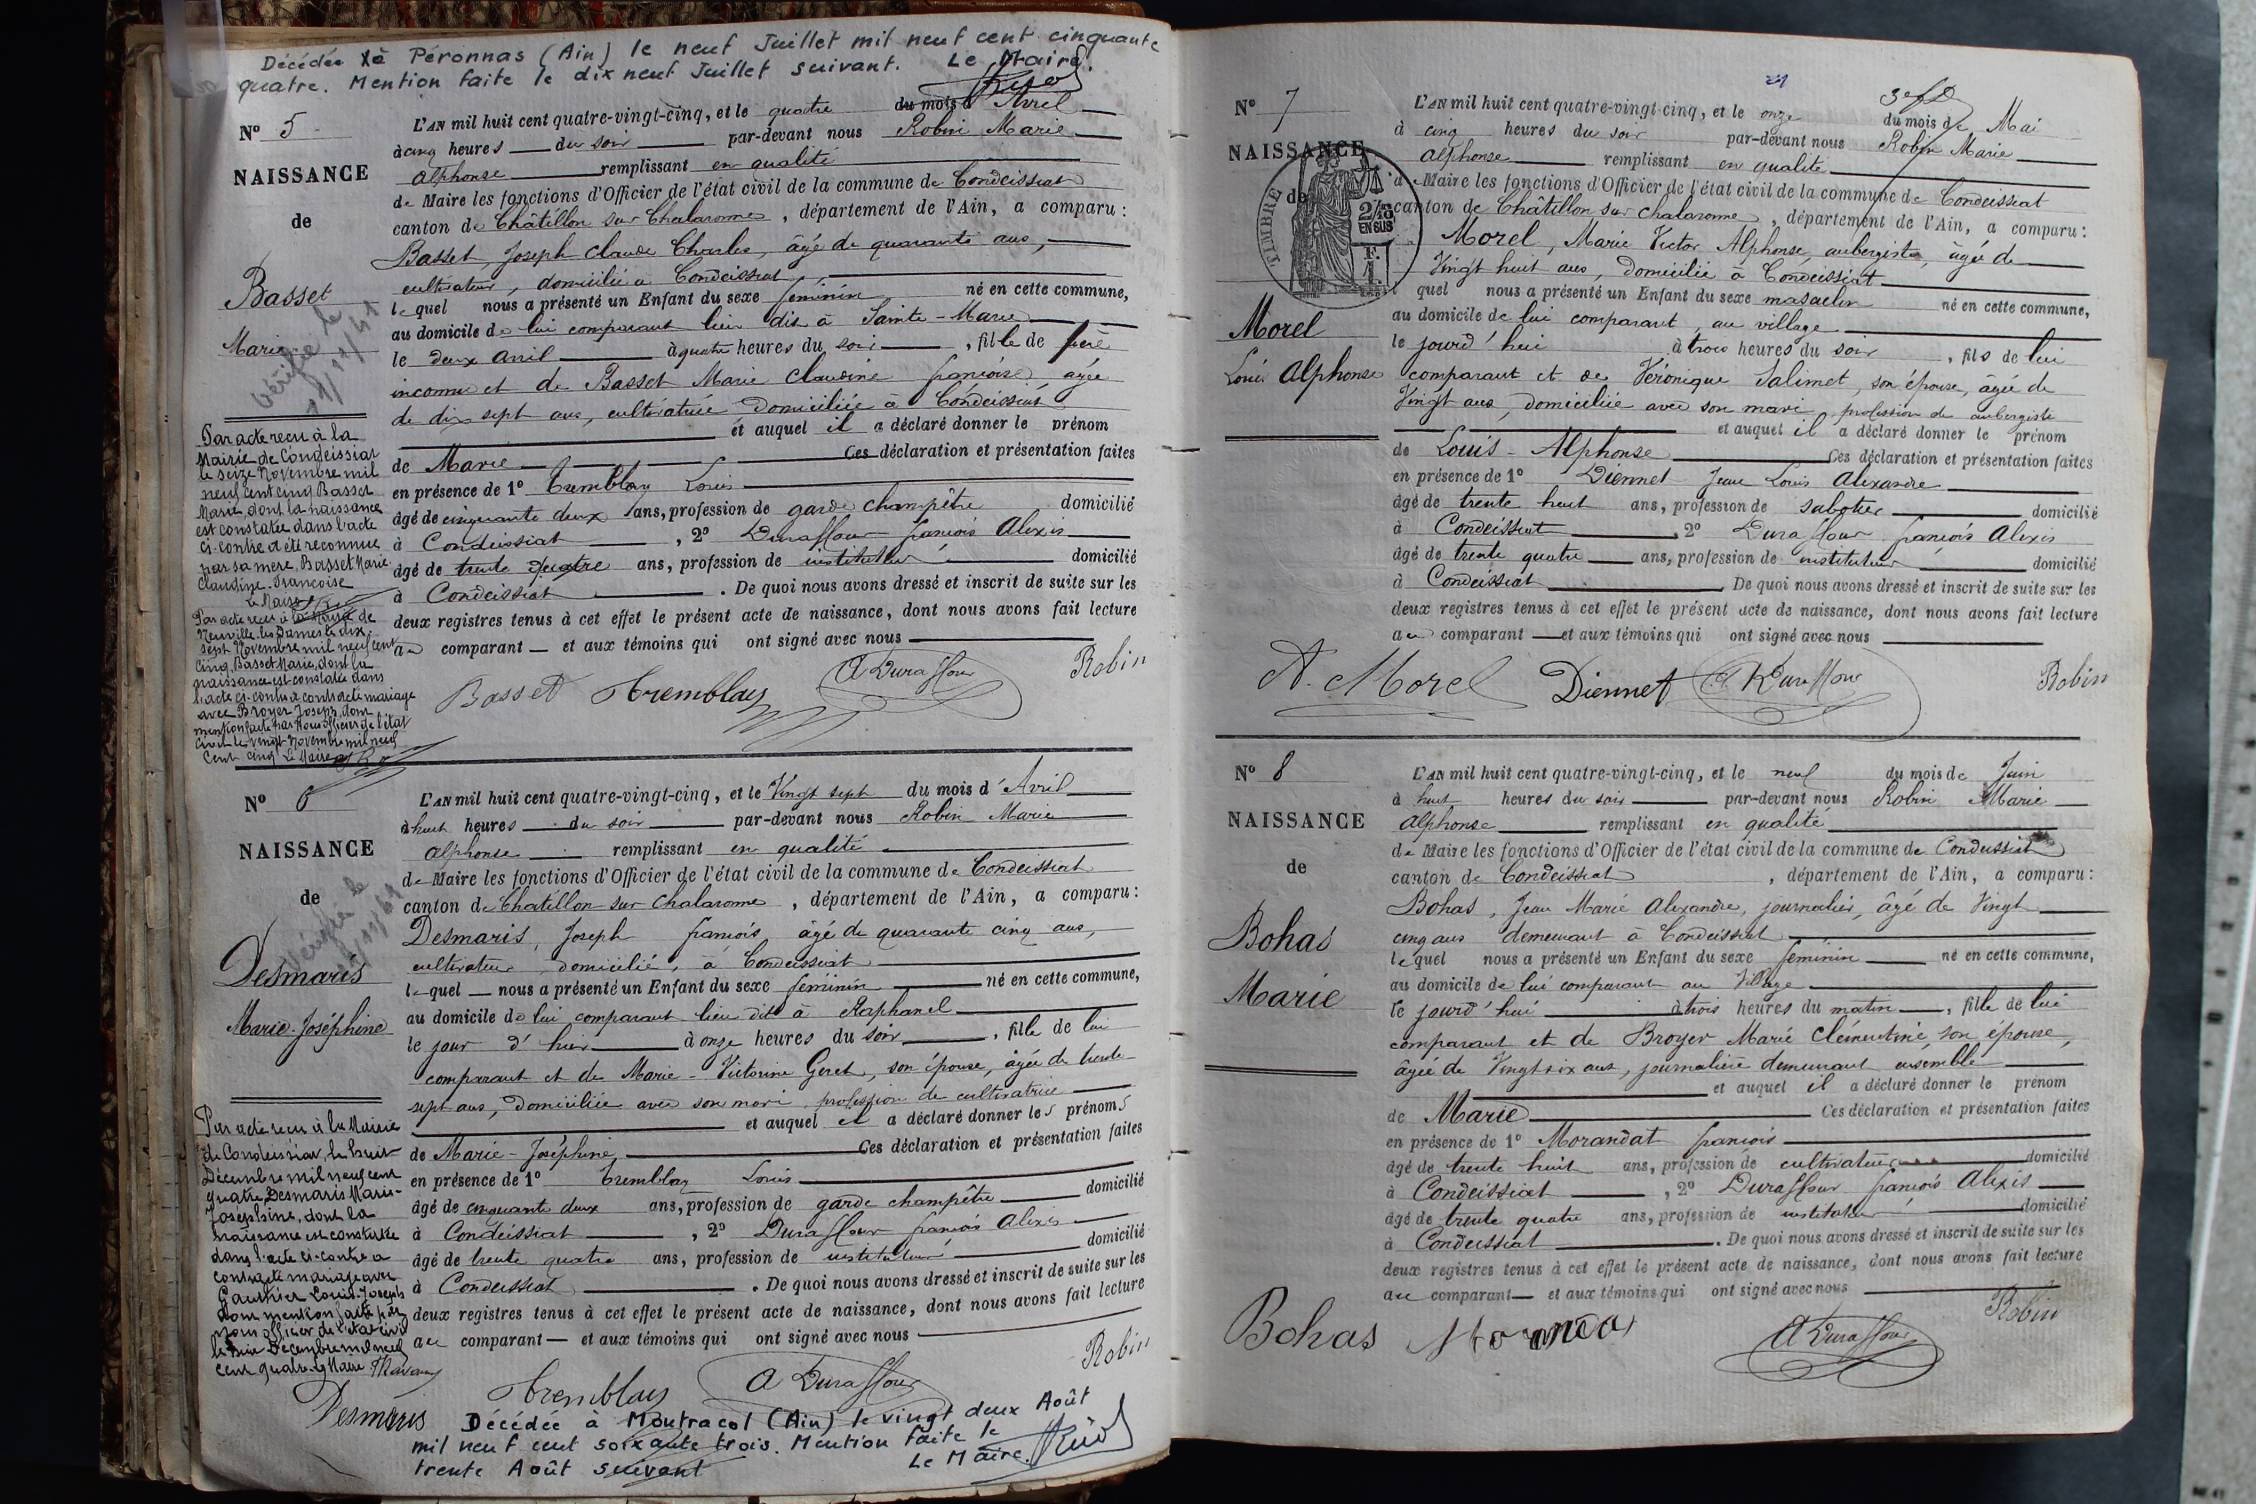 Décédée à Péronnas (Ain) le neuf Juillet mil neuf cent cinquante
quatre. Mention faite le dix neuf Juillet suivant. Le Maire.
N° 5
NAISSANCE
de
Basset
Marie
Vérifié le
L'AN mil huit cent quatre-vingt-cinq, et le quatre du mois d'Avril
à cinq heures du soir par-devant nous Robin Marie
Alphonse remplissant en qualité
de Maire les fonctions d'Officier de l'état civil de la commune de Condeissiat
canton de Châtillon sur Chalaronne, département de l'Ain, a comparu :
Basset, Joseph Claude Charles, âgé de quarante ans,
cultivateur, domicilié à Condeissiat,
lequel nous a présenté un Enfant du sexe féminin né en cette commune,
au domicile de lui comparant lieu dit à Sainte-Marie
le deux avril à quatre heures du soir, fille de père
inconnu et de Basset Marie Claudine françoise âgée
de dix sept ans, cultivatrice domiciliée à Condeissiat
et auquel il a déclaré donner le prénom
de Marie Ces déclaration et présentation faites
en présence de 1° Tremblay Louis
âgé de cinquante deux ans, profession de garde champêtre domicilié
à Condeissiat, 2° Duraffour françois Alexis
âgé de trente quatre ans, profession de instituteur domicilié
à Condeissiat. De quoi nous avons dressé et inscrit de suite sur les
deux registres tenus à cet effet le présent acte de naissance, dont nous avons fait lecture
au comparant et aux témoins qui ont signé avec nous
Basset Tremblay A Duraffour Robin
Par acte reçu à la
Mairie de Condeissiat
le seize Novembre mil
neuf cent cinq Basset
Marie, dont la naissance
est constatée dans l'acte
ci-contre a été reconnue
par sa mère, Basset Marie
Claudine Françoise
Le Maire
Par acte reçu à la Mairie de
Neuville-les-Dames le dix
sept Novembre mil neuf cent
cinq, Basset Marie, dont la
naissance est constatée dans
l'acte ci-contre a contracté mariage
avec Broyer Joseph, dont
mention faite par Nous officier de l'état
civil le vingt Novembre mil neuf
cent cinq Le Maire
N° 6
NAISSANCE
de
Desmaris
Marie-Joséphine
Vérifié le
L'AN mil huit cent quatre-vingt-cinq, et le Vingt sept du mois d'Avril
à huit heures du soir par-devant nous Robin Marie
Alphonse remplissant en qualité
de Maire les fonctions d'Officier de l'état civil de la commune de Condeissiat
canton de Chatillon sur Chalaronne, département de l'Ain, a comparu :
Desmaris, Joseph françois, âgé de quarante cinq ans,
cultivateur, domicilié, à Condeissiat
lequel nous a présenté un Enfant du sexe féminin né en cette commune,
au domicile de lui comparant lieu dit à Raphanel
le jour d'hier à onze heures du soir, fille de lui
comparant et de Marie-Victorine Geret, son épouse, âgée de trente
sept ans, domiciliée avec son mari profession de cultivatrice
et auquel il a déclaré donner les prénoms
de Marie-Joséphine Ces déclaration et présentation faites
en présence de 1° Tremblay Louis
âgé de cinquante deux ans, profession de garde champêtre domicilié
à Condeissiat, 2° Duraffour françois Alexis
âgé de trente quatre ans, profession de instituteur domicilié
à Condeissiat. De quoi nous avons dressé et inscrit de suite sur les
deux registres tenus à cet effet le présent acte de naissance, dont nous avons fait lecture
au comparant et aux témoins qui ont signé avec nous
Robin
Desmaris Tremblay A Duraffour
Par acte reçu à la Mairie
de Condeissiat, le huit
Décembre mil neuf cent
quatre, Desmaris Marie-
Joséphine, dont la
naissance est constatée
dans l'acte ci-contre a
contracté mariage avec
Gauthier Louis-Joseph
dont mention faite par
nous officier de l'état civil
le huit Décembre mil neuf
cent quatre. Le Maire
Décédée à Montracol (Ain) le vingt deux Août
mil neuf cent soixante trois. Mention faite le
trente Août suivant Le Maire.
N° 7
NAISSANCE
de
TIMBRE
2/10
EN SUS
Morel
Louis Alphonse
L'AN mil huit cent quatre-vingt-cinq, et le onze du mois de Mai
à cinq heures du soir par-devant nous Robin Marie
Alphonse remplissant en qualité
de Maire les fonctions d'Officier de l'état civil de la commune de Condeissiat
canton de Châtillon sur Chalaronne, département de l'Ain, a comparu :
Morel, Marie Victor Alphonse, aubergiste, âgé de
Vingt huit ans, domicilié à Condeissiat
lequel nous a présenté un Enfant du sexe masculin né en cette commune,
au domicile de lui comparant, au village
le jourd'hui à trois heures du soir, fils de lui
comparant et de Véronique Salimet, son épouse, âgée de
Vingt ans, domiciliée avec son mari, profession de aubergiste
et auquel il a déclaré donner le prénom
de Louis-Alphonse Ces déclaration et présentation faites
en présence de 1° Diennet Jean Louis Alexandre
âgé de trente huit ans, profession de sabotier domicilié
à Condeissiat, 2° Duraffour françois Alexis
âgé de trente quatre ans, profession de instituteur domicilié
à Condeissiat. De quoi nous avons dressé et inscrit de suite sur les
deux registres tenus à cet effet le présent acte de naissance, dont nous avons fait lecture
au comparant et aux témoins qui ont signé avec nous
A. Morel Diennet A Duraffour Robin
N° 8
NAISSANCE
de
Bohas
Marie
L'AN mil huit cent quatre-vingt-cinq, et le neuf du mois de Juin
à huit heures du soir par-devant nous Robin Marie
Alphonse remplissant en qualité
de Maire les fonctions d'Officier de l'état civil de la commune de Condeissiat
canton de Condeissiat, département de l'Ain, a comparu :
Bohas, Jean Marie Alexandre, journalier, âgé de Vingt
cinq ans demeurant à Condeissiat
lequel nous a présenté un Enfant du sexe féminin né en cette commune,
au domicile de lui comparant au Village
le jourd'hui à trois heures du matin, fille de lui
comparant et de Broyer Marie Clémentine, son épouse,
âgée de Vingt six ans, journalière demeurant ensemble
et auquel il a déclaré donner le prénom
de Marie Ces déclaration et présentation faites
en présence de 1° Morandat françois
âgé de trente huit ans, profession de cultivateur domicilié
à Condeissiat, 2° Duraffour françois Alexis
âgé de trente quatre ans, profession de instituteur domicilié
à Condeissiat. De quoi nous avons dressé et inscrit de suite sur les
deux registres tenus à cet effet le présent acte de naissance, dont nous avons fait lecture
au comparant et aux témoins qui ont signé avec nous
Bohas A Duraffour Robin